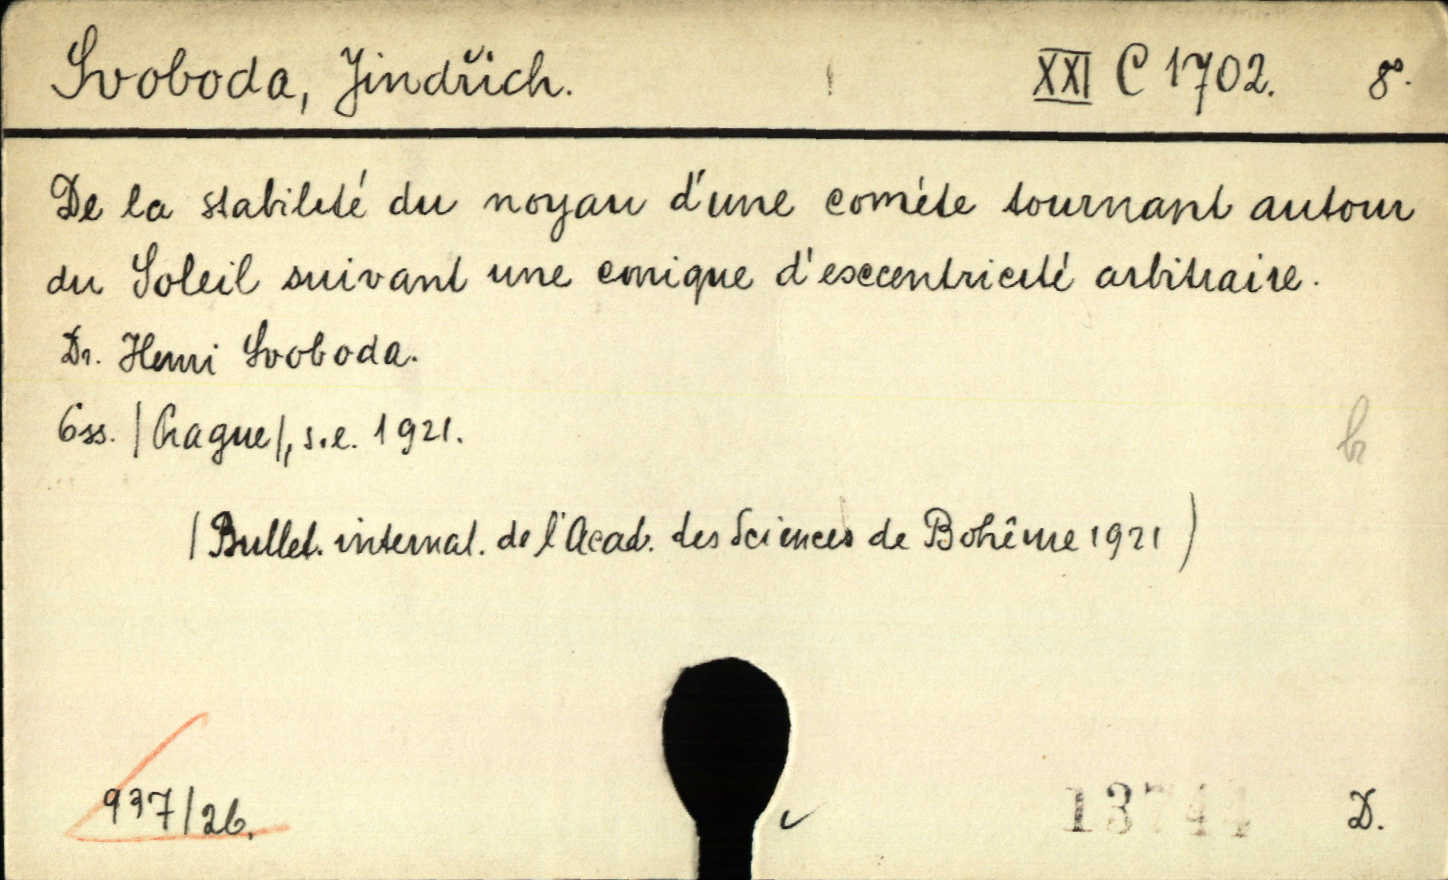 Svoboda, Jindřich. XXI C 1702. 8°.
De la stabilité du noyau d'une comète tournant autour
du Soleil suivant une conique d'excentricité arbitraire.
Dr. Henri Svoboda.
6 ss. /Prague/, s.e. 1921.
br
/Bullet. internat. de l'Acad. des Sciences de Bohême 1921/
937/26. 13744 D.